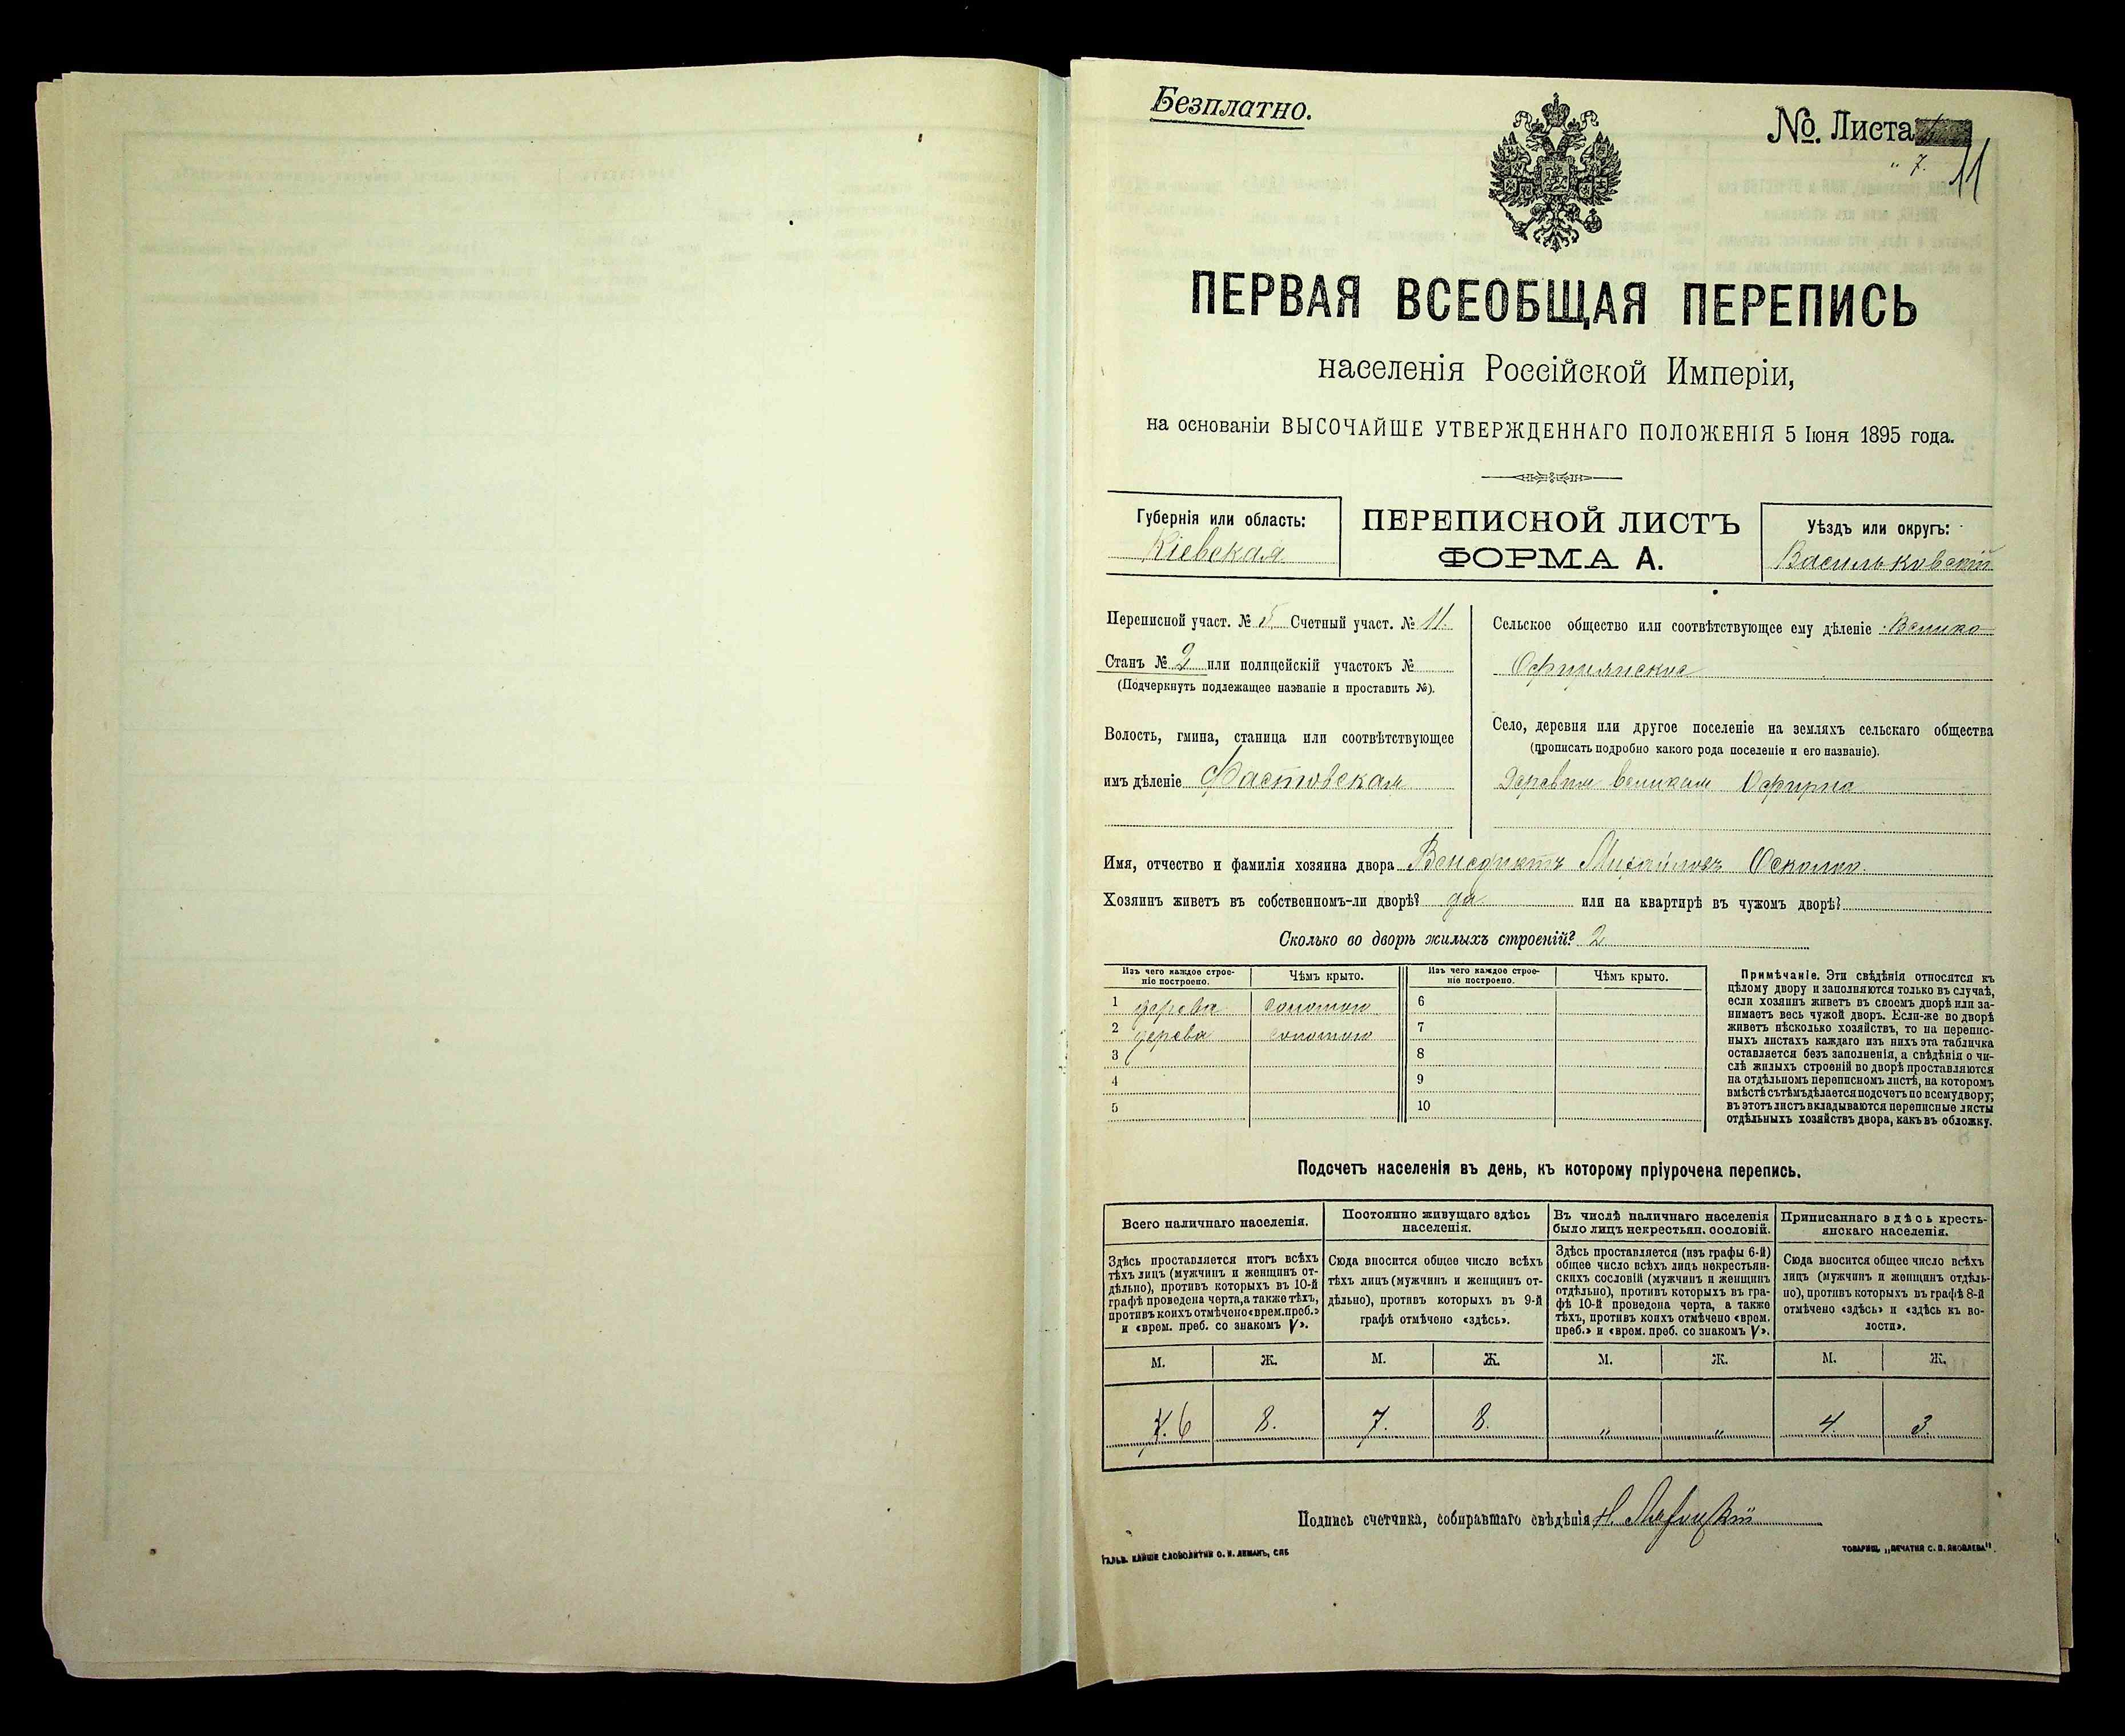 Безплатно.
№. Листа
" 7. 11
ПЕРВАЯ ВСЕОБЩАЯ ПЕРЕПИСЬ
населенія Россійской Имперіи,
на основаніи ВЫСОЧАЙШЕ УТВЕРЖДЕННАГО ПОЛОЖЕНІЯ 5 Іюня 1895 года.
Губернія или область:
Кіевская
ПЕРЕПИСНОЙ ЛИСТЪ
ФОРМА А.
Уѣздъ или округъ:
Васильковскій
Переписной участ. № 5 Счетный участ. № 11.
Станъ № 2 или полицейскій участокъ №
(Подчеркнуть подлежащее названіе и проставить №).
Волость, гмина, станица или соотвѣтствующее
имъ дѣленіе Фастовская
Сельское общество или соотвѣтствующее ему дѣленіе Велико
Офирнянское
Село, деревня или другое поселеніе на земляхъ сельскаго общества
(прописать подробно какого рода поселеніе и его названіе).
Деревня великая Офирна
Имя, отчество и фамилія хозяина двора Венедиктъ Михайловъ Осколко.
Хозяинъ живетъ въ собственномъ-ли дворѣ? да или на квартирѣ въ чужомъ дворѣ?
Сколько во дворѣ жилыхъ строеній? 2
Изъ чего каждое строе-
ніе построено.
Чѣмъ крыто.
Изъ чего каждое строе-
ніе построено.
Чѣмъ крыто.
1 дерева соломою 6
2 дерева соломою 7
3 8
4 9
5 10
Примѣчаніе. Эти свѣдѣнія относятся къ
цѣлому двору и заполняются только въ случаѣ,
если хозяинъ живетъ въ своемъ дворѣ или за-
нимаетъ весь чужой дворъ. Если-же во дворѣ
живетъ нѣсколько хозяйствъ, то на перепис-
ныхъ листахъ каждаго изъ нихъ эта табличка
оставляется безъ заполненія, а свѣдѣнія о чи-
слѣ жилыхъ строеній во дворѣ проставляются
на отдѣльномъ переписномъ листѣ, на которомъ
вмѣстѣ съ тѣмъ дѣлается подсчетъ по всему двору;
въ этотъ листъ вкладываются переписные листы
отдѣльныхъ хозяйствъ двора, какъ въ обложку.
Подсчетъ населенія въ день, къ которому пріурочена перепись.
Всего наличнаго населенія.
Здѣсь проставляется итогъ всѣхъ
тѣхъ лицъ (мужчинъ и женщинъ от-
дѣльно), противъ которыхъ въ 10-й
графѣ проведена черта, а также тѣхъ,
противъ коихъ отмѣчено «врем. преб.»
и «врем. преб. со знакомъ V».
Постоянно живущаго здѣсь
населенія.
Сюда вносится общее число всѣхъ
тѣхъ лицъ (мужчинъ и женщинъ от-
дѣльно), противъ которыхъ въ 9-й
графѣ отмѣчено «здѣсь».
Въ числѣ наличнаго населенія
было лицъ некрестьян. сословій.
Здѣсь проставляется (изъ графы 6-й)
общее число всѣхъ лицъ некрестьян-
скихъ сословій (мужчинъ и женщинъ
отдѣльно), противъ которыхъ въ гра-
фѣ 10-й проведена черта, а также
тѣхъ, противъ коихъ отмѣчено «врем.
преб.» и «врем. преб. со знакомъ V».
Приписаннаго здѣсь кресть-
янскаго населенія.
Сюда вносится общее число всѣхъ
лицъ (мужчинъ и женщинъ отдѣль-
но), противъ которыхъ въ графѣ 8-й
отмѣчено «здѣсь» и «здѣсь къ во-
лости».
М. Ж. М. Ж. М. Ж. М. Ж.
7. 6 8. 7. 8. " " 4 3.
Подпись счетчика, собиравшаго свѣдѣнія Н.
ГАЛЬВ. КЛИШЕ СЛОВОЛИТНИ О. И. ЛЕМАНЪ, СПБ
ТОВАРИЩ. „ПЕЧАТНЯ С. П. ЯКОВЛЕВА"